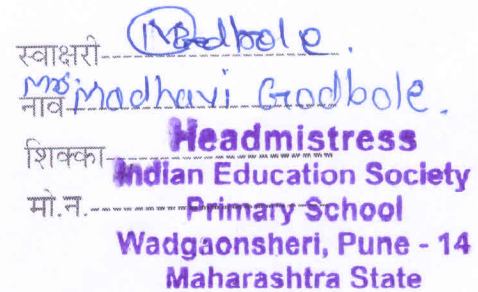 स्वाक्षरी Godbole.
नाव Mrs Madhavi Godbole.
शिक्का Headmistress
Indian Education Society
मो.न. Primary School
Wadgaonsheri, Pune - 14
Maharashtra State